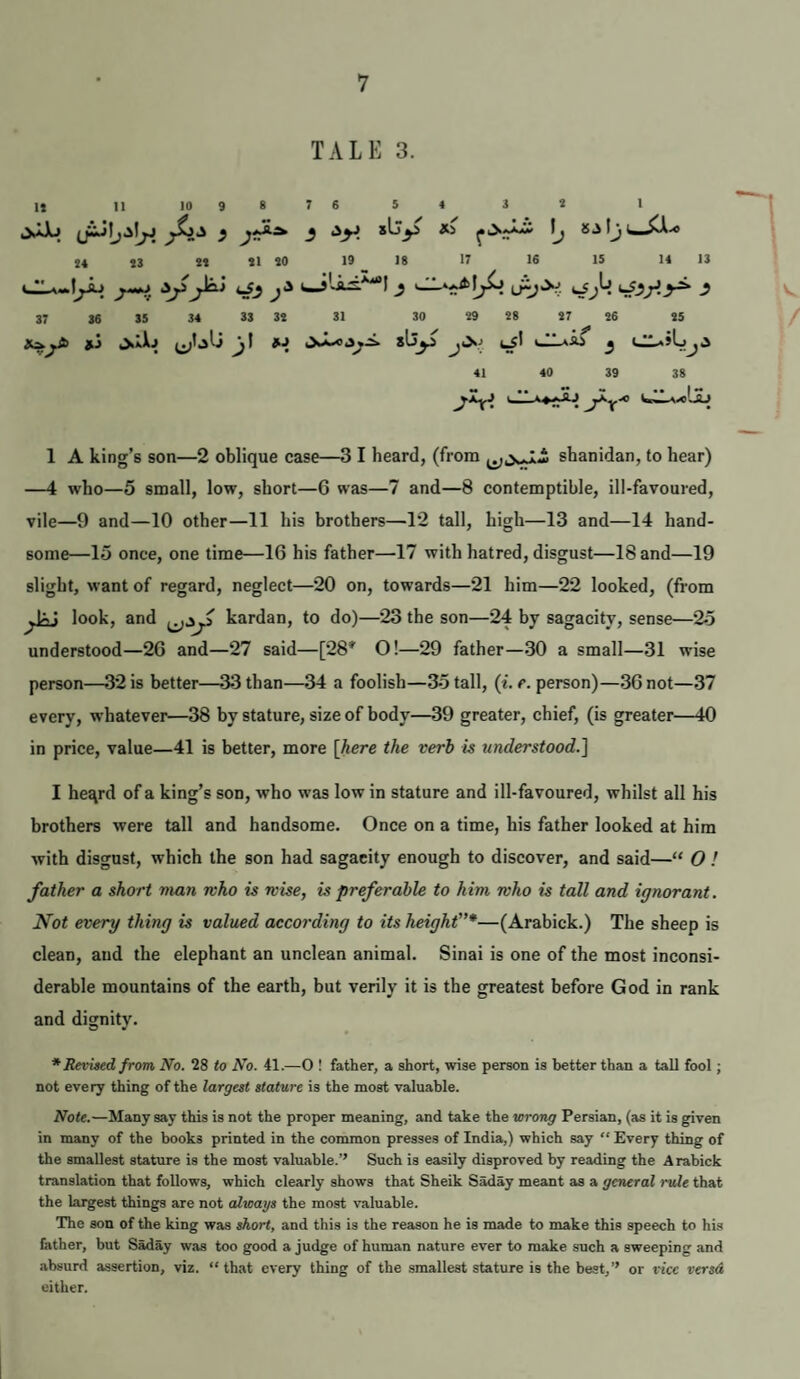 7
TALE 3.
12 11 10 9 8 7 6 5 4 3 2 1
ملک زاده را شنیدم که کوتاه بود و حقیر و دیگر برادرانش بلند
24 23 22 21 20 19 18 17 16 15 14 13
و خوبروی باری پدرش بکراهیت و استخفاف در وی نظرکرد پسر بفراست
37 36 35 34 33 32 31 30 29 28 27 26 25
دریافت و گفت ای پدر کوتاه خردمند به از نادان بلند نه هرچه
41 40 39 38
بقامت مهتر بقیمت بهتر
1 A king's son—2 oblique case—3 I heard, (from شنیدن shanidan, to hear)
—4 who—5 small, low, short—6 was—7 and—8 contemptible, ill-favoured,
vile—9 and—10 other—11 his brothers—12 tall, high—13 and—14 hand-
some—15 once, one time—16 his father—17 with hatred, disgust—18 and—19
slight, want of regard, neglect—20 on, towards—21 him—22 looked, (from
نظر look, and کردن kardan, to do)—23 the son—24 by sagacity, sense—25
understood—26 and—27 said—[28* O!—29 father—30 a small—31 wise
person—32 is better—33 than—34 a foolish—35 tall, (i. e. person)—36 not—37
every, whatever—38 by stature, size of body—39 greater, chief, (is greater—40
in price, value—41 is better, more [here the verb is understood.]
I heard of a king's son, who was low in stature and ill-favoured, whilst all his
brothers were tall and handsome. Once on a time, his father looked at him
with disgust, which the son had sagacity enough to discover, and said—“ O !
father a short man who is wise, is preferable to him who is tall and ignorant.
Not every thing is valued according to its height”*—(Arabick.) The sheep is
clean, and the elephant an unclean animal. Sinai is one of the most inconsi-
derable mountains of the earth, but verily it is the greatest before God in rank
and dignity.
* Revised from No. 28 to No. 41.—O ! father, a short, wise person is better than a tall fool ;
not every thing of the largest stature is the most valuable.
Note.—Many say this is not the proper meaning, and take the wrong Persian, (as it is given
in many of the books printed in the common presses of India,) which say “ Every thing of
the smallest stature is the most valuable.” Such is easily disproved by reading the Arabick
translation that follows, which clearly shows that Sheik Sāday meant as a general rule that
the largest things are not always the most valuable.
The son of the king was short, and this is the reason he is made to make this speech to his
father, but Sāday was too good a judge of human nature ever to make such a sweeping and
absurd assertion, viz. “ that every thing of the smallest stature is the best,” or vice versâ
either.